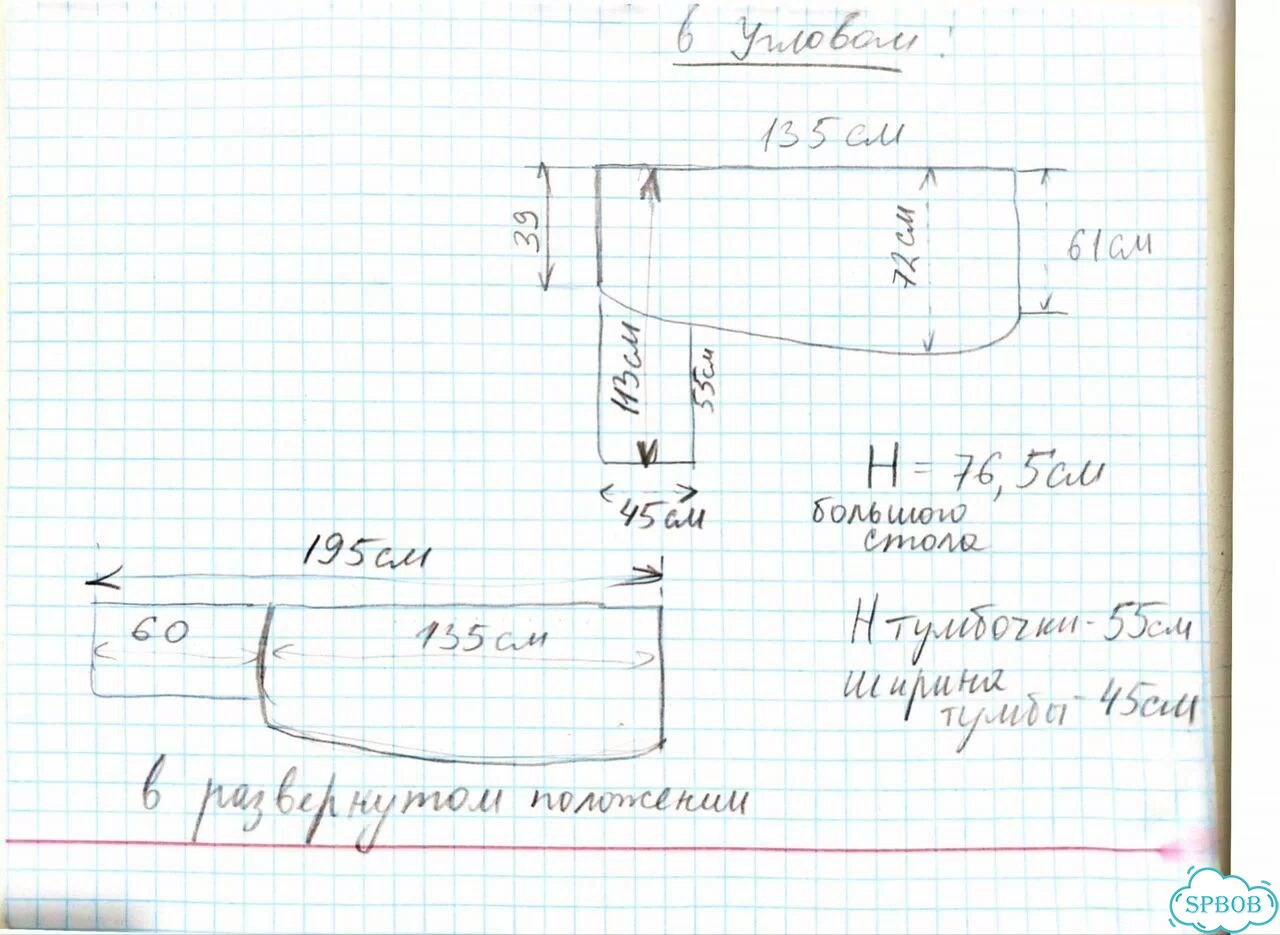 в Угловом:
135см
39
72см
61см
113см
55см
45см
H = 76,5см
большого
стола
195см
60
135см
H тумбочки - 55см
ширина
тумбы - 45см
в развернутом положении
SPBOB